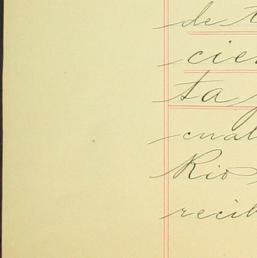 de t
cien
ta
cual
Rio
recib